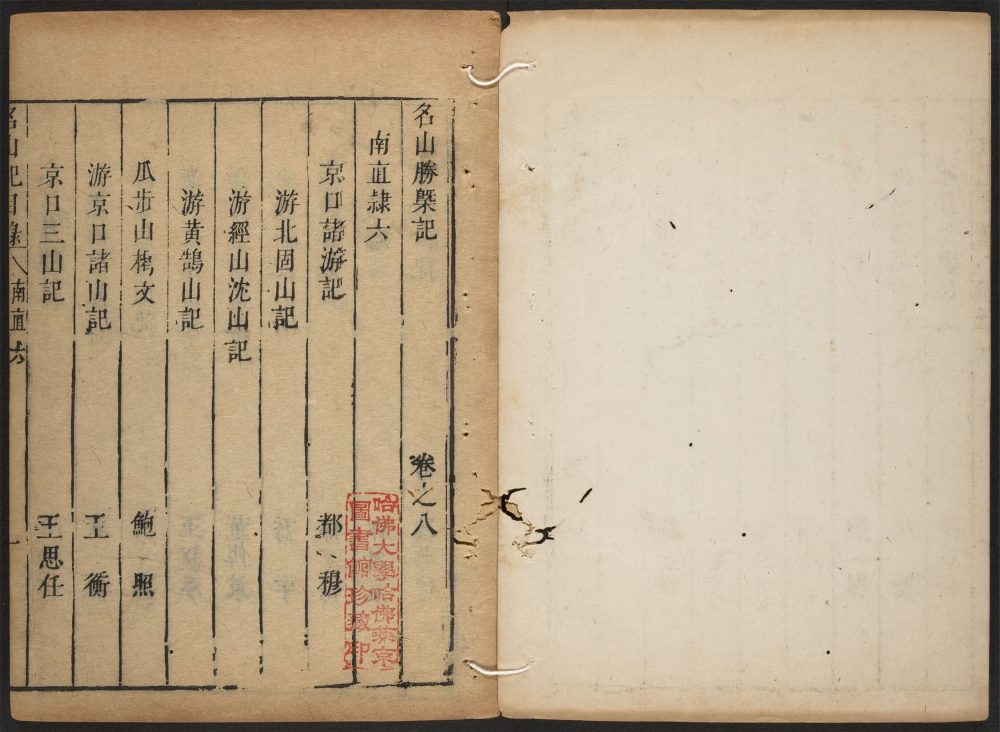 名山勝槩記 卷之八
南直隷六
京口諸游記 都穆
游北固山記
游經山沈山記
游黄鵠山記
瓜步山楬文 鮑照
游京口諸山記 王衡
京口三山記 王思任
名山記目錄 南直六 一
哈佛大學哈佛燕京
圖書館珍藏印